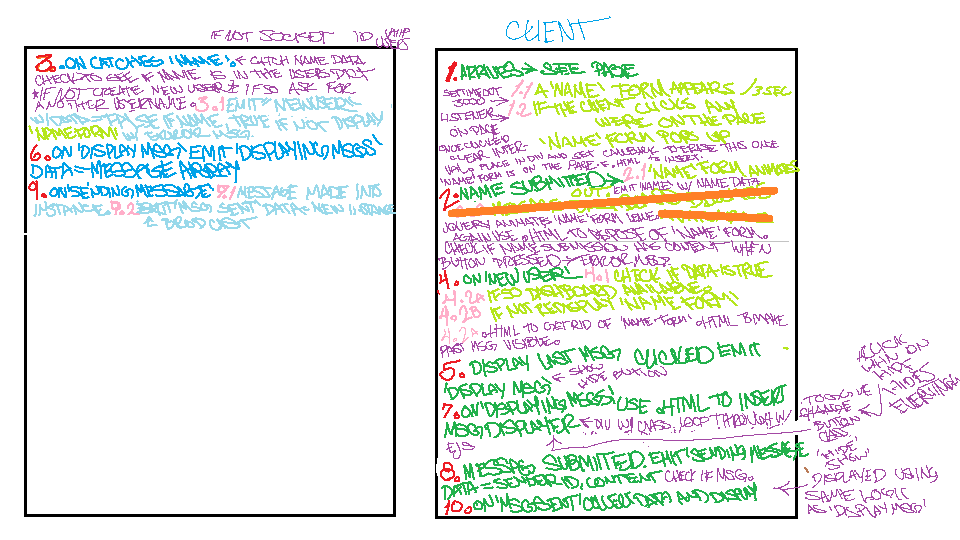 IF NOT SOCKET IO
USERS
3. ON CATCHES 'NAME'. CATCH NAME DATA
CHECK TO SEE IF NAME IS IN THE USERS DICT
*IF NOT CREATE NEW USER & IF SO ASK FOR
ANOTHER USERNAME. 3.1 EMIT 'NEWUSER'
W/ DATA = FALSE IF NAME, TRUE IF NOT DISPLAY
'NAMEFORM' W/ ERROR MSG.
6. ON 'DISPLAY MSG' EMIT 'DISPLAYING MSGS'
DATA = MESSAGE ARRAY
9. ON 'SENDING MESSAGE' 9.1 MESSAGE MADE INTO
INSTANCE. 9.2 EMIT 'MSG SENT' DATA = NEW INSTANCE
BROADCAST
CLIENT
1. ARRIVES → SEE PAGE
1.1 A 'NAME' FORM APPEARS /3 SEC
SETTIMEOUT
3000
1.2 IF THE CLIENT CLICKS ANY
LISTENER
WHERE ON THE PAGE
ON PAGE
'NAME' FORM POPS UP
ONCE CLICKED
CLEAR INTER-
VAL. PLACE IN DIV AND SET CALLBACK TO ERASE THIS ONCE
'NAME' FORM IS ON THE PAGE. .HTML TO INSERT.
2. NAME SUBMITTED → 2.1 'NAME' FORM
EMIT 'NAMES' W/ NAME DATA
OUT.
JQUERY ANIMATE 'NAME' FORM
AGAIN USE .HTML TO DISPOSE OF 'NAME' FORM.
CHECK IF NAME SUBMISSION HAS CONTENT WHEN
BUTTON PRESSED → ERROR MSG?
4. ON 'NEW USER' 4.1 CHECK IF DATA IS TRUE
4.2A IF SO DASHBOARD AVAILABLE.
4.2B IF NOT REDISPLAY 'NAME FORM'
4.2A .HTML TO GET RID OF 'NAME-FORM' .HTML & MAKE
PAST MSG VISIBLE.
5. DISPLAY LAST MSG, CLICKED EMIT
'DISPLAY MSG' ← SHOW
HIDE BUTTON
7. ON 'DISPLAYING MSGS' USE .HTML TO INSERT
MSG DISPLAYER DIV W/ CLASS, LOOP THROUGH W/
EJS
8. MESSAG SUBMITTED. EMIT 'SENDING MESSAGE'
DATA = SENDER ID, CONTENT CHECK IF MSG.
10. ON 'MSG SENT' COLLECT DATA AND DISPLAY
A CLICK
WHEN ON
'HIDE'
HIDES
EVERYTHING
TOGGLE
CHANGE
BUTTON
CLASS
'HIDE'
'SHOW'
DISPLAYED USING
SAME LOGIC
AS 'DISPLAY MSG'